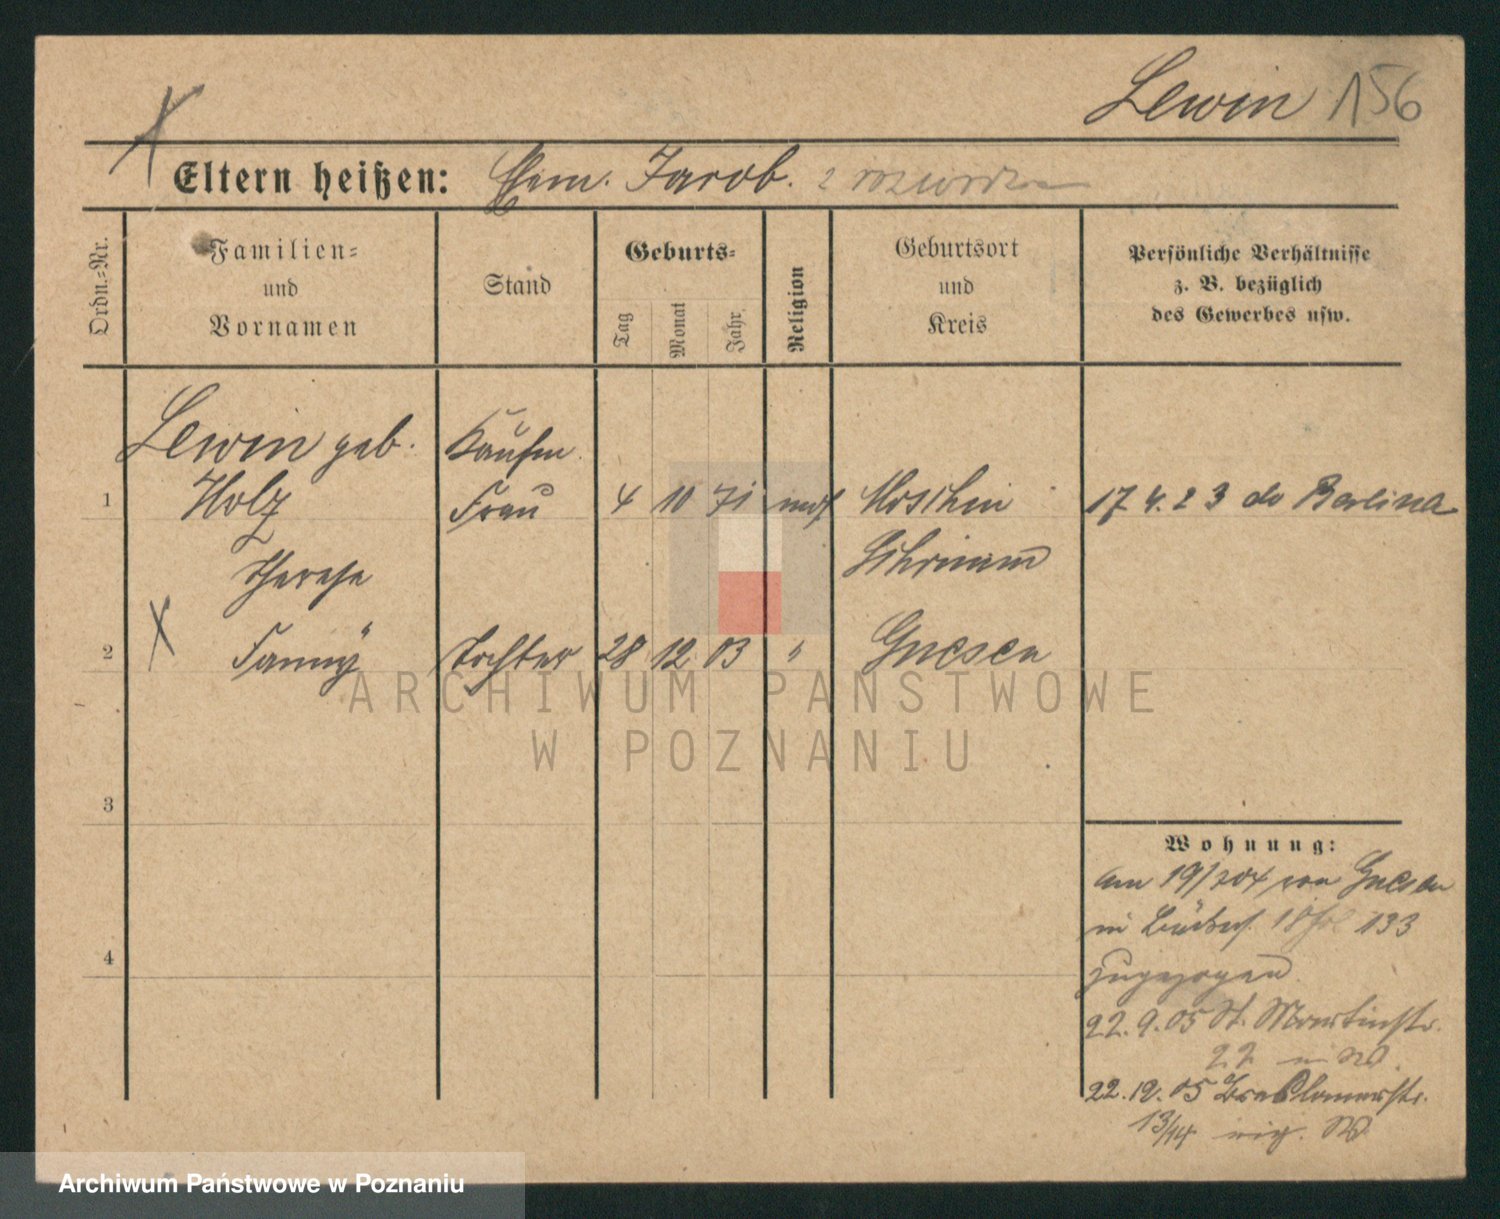 Lewin 156
Eltern heißen: Ehem. Jacob.
Ordn.-Nr.
Familien-
und
Vornamen
Stand
Geburts-
Tag
Monat
Jahr
Religion
Geburtsort
und
Kreis
Persönliche Verhältnisse
z. B. bezüglich
des Gewerbes usw.
Lewin geb. Kaufm.
1 Holz Frau 4 10 71 mos Moschin 17 4. 23 do Berlina
Therese Schrimm
2 Fanny Tochter 28 12 03 " Gnesen
ARCHIWUM PAŃSTWOWE
W POZNANIU
3
Wohnung:
am 19/ 04 von Gnesen
in 18 133
4 zugezogen
22. 9. 05 St. Martinstr.
22
22. 12. 05 Breslauerstr.
13/14
Archiwum Państwowe w Poznaniu